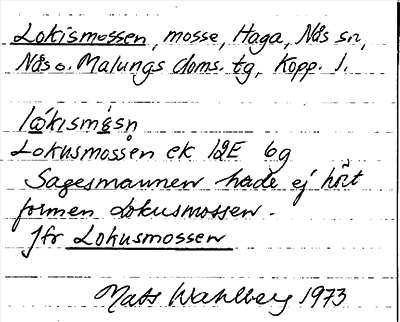 Lokismossen, mosse, Haga, Nås sn,
Nås o. Malungs doms. tg, Kopp. l.
lo̱kismo̱sn
Lokusmossen ek 12E 6g
Sagesmannen hade ej hört
formen Lokusmossen.
Jfr Lokusmossen
Mats Wahlberg 1973